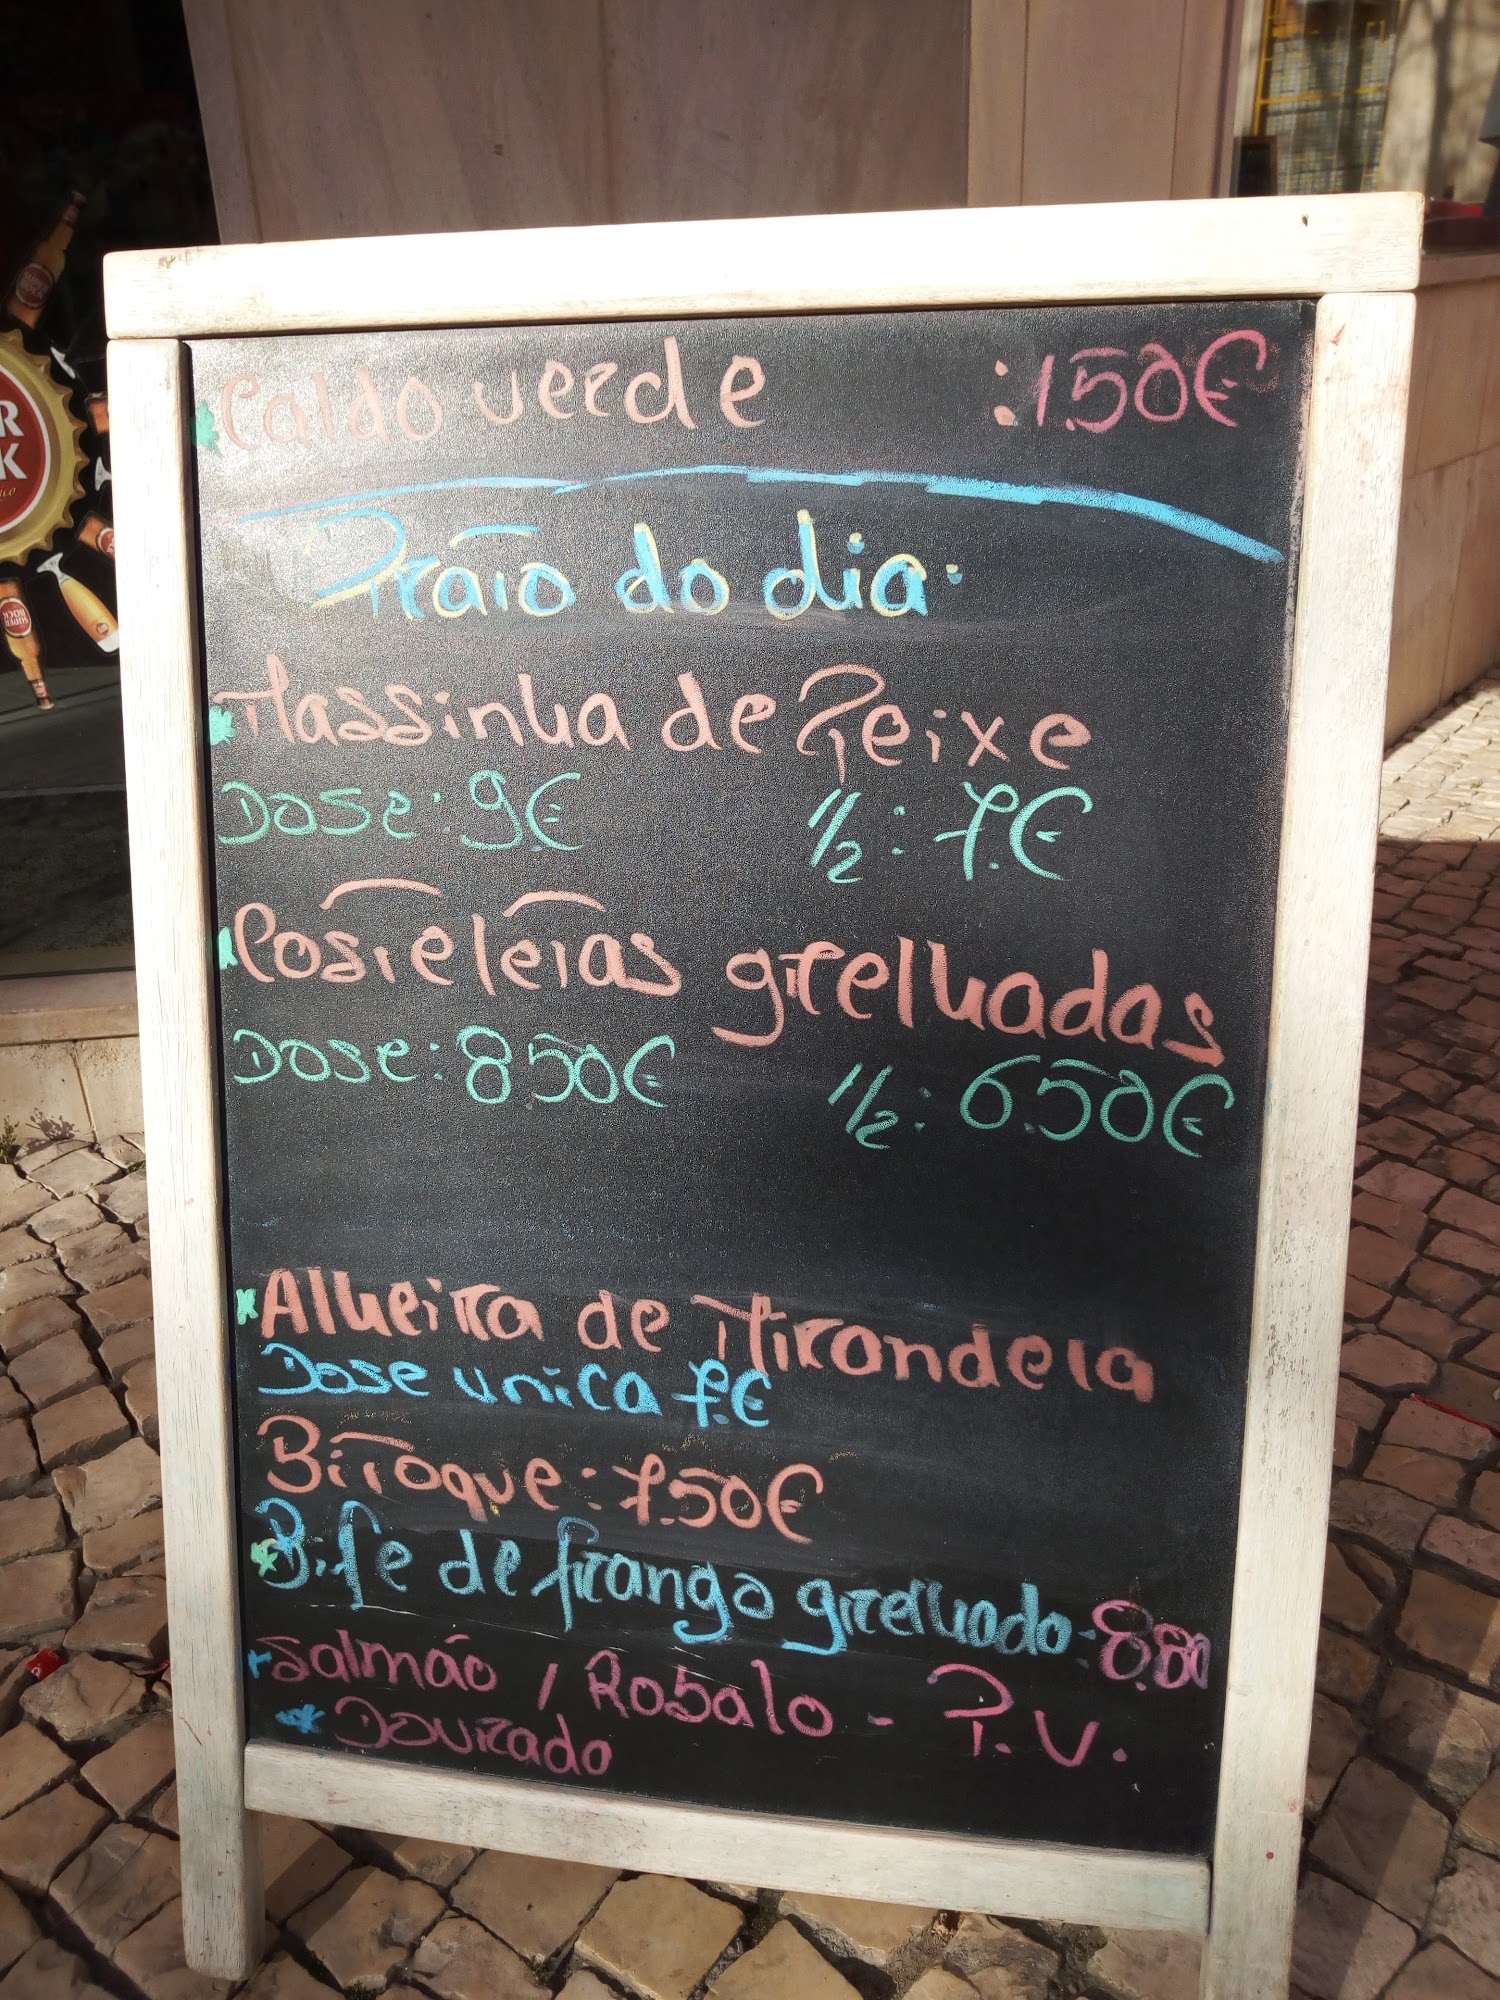 Caldo verde :1.50€
Prato do dia:
Massinha de Peixe
Dose: 9€ 1/2: 7.€
Costeletas grelhadas
Dose: 8.50€ 1/2: 6.50€
Alheira de Mirandela
Dose unica 7.€
Bitoque: 7.50€
Bife de frango grelhado - 8.80
Salmão / Robalo - P.V.
Dourado